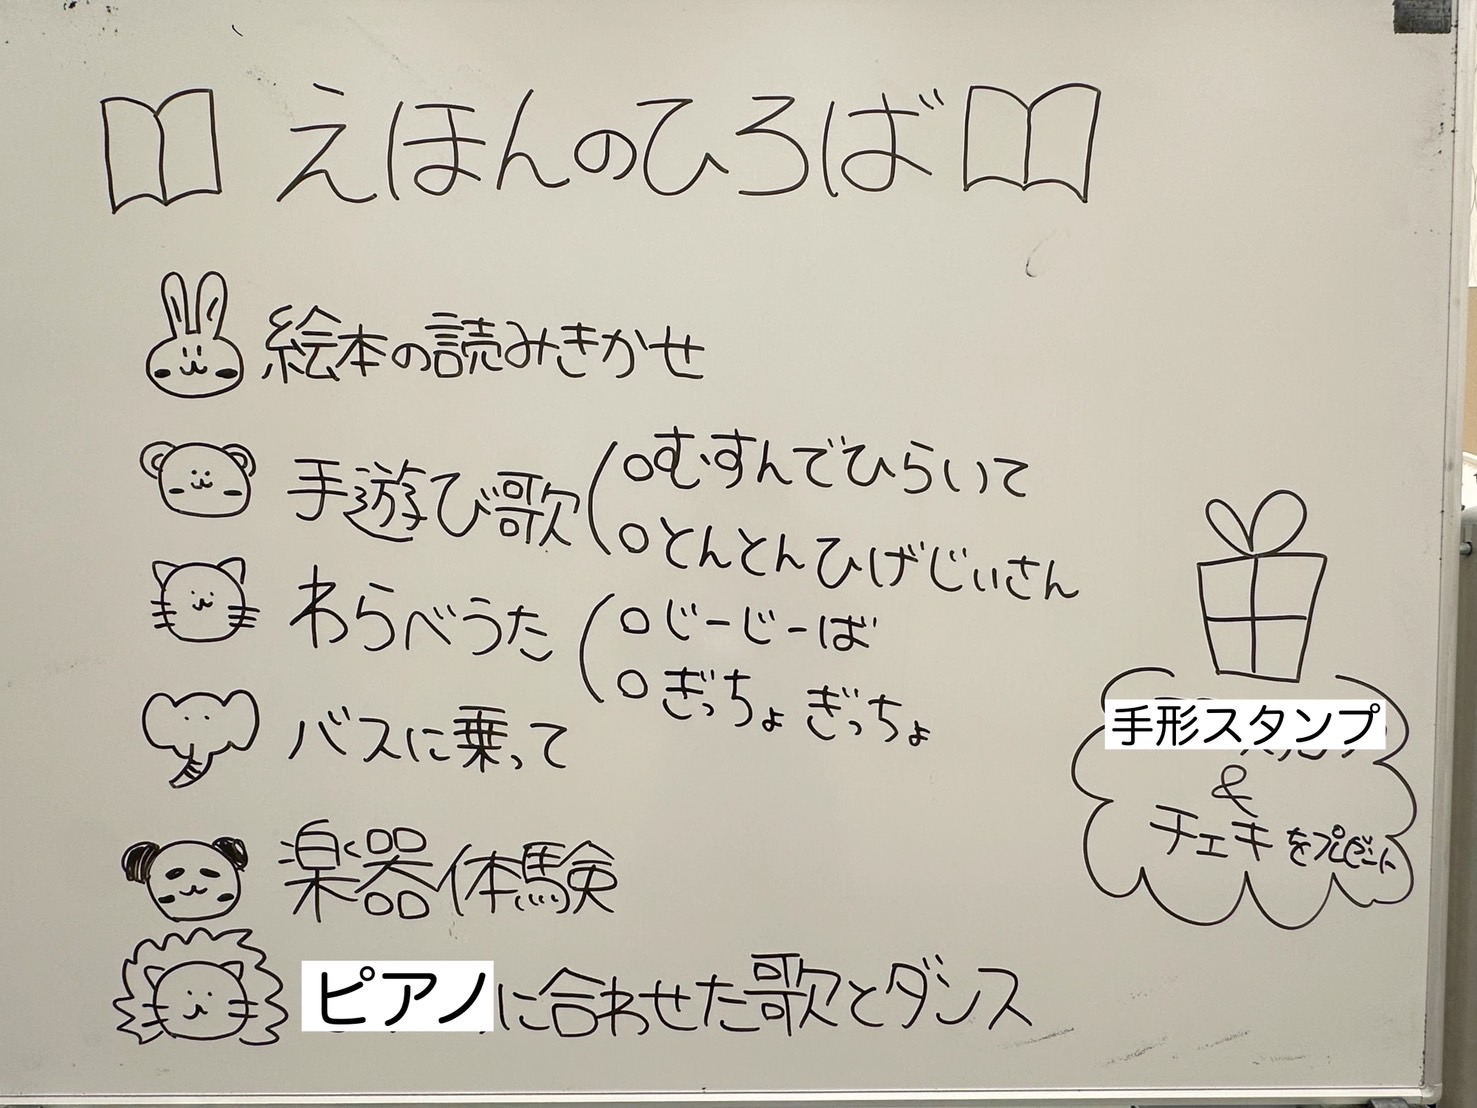 えほんのひろば
絵本の読みきかせ
手遊び歌
○むすんでひらいて
○とんとんひげじいさん
わらべうた
○じーじーば
○ぎっちょぎっちょ
バスに乗って
楽器体験
ピアノに合わせた歌とダンス
手形スタンプ
&
チェキをプレゼント